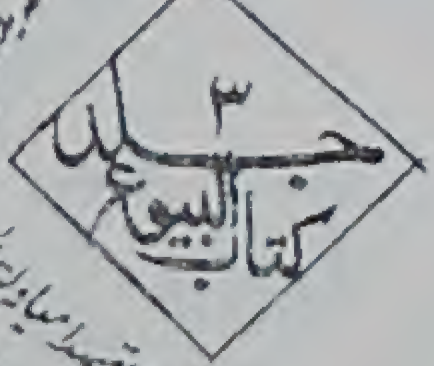 ٣
جلد
كتاب البيوع